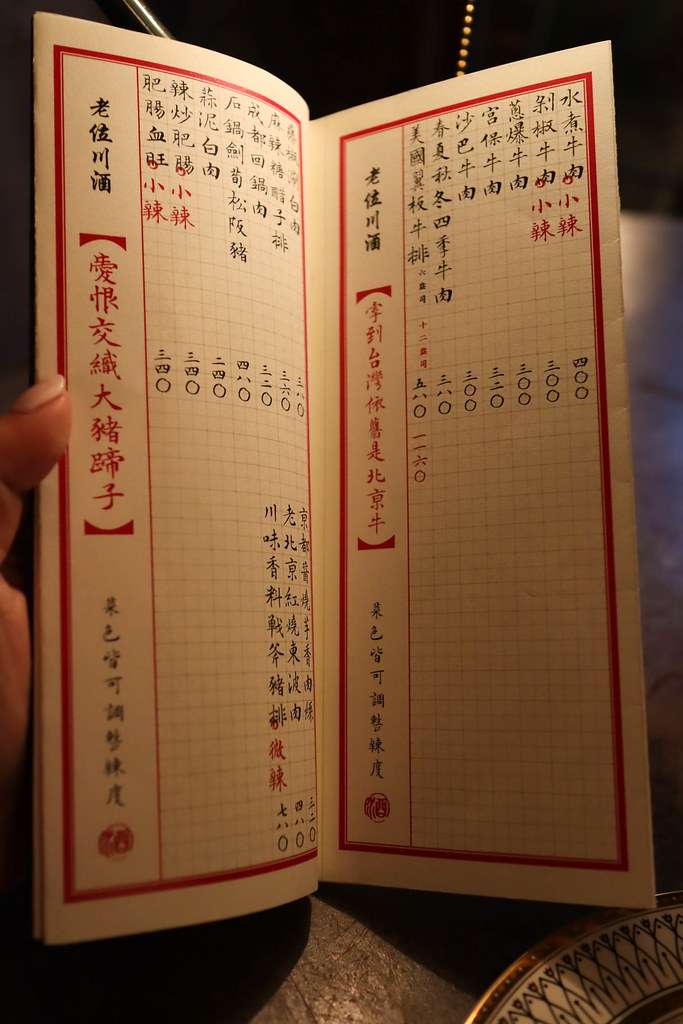 水煮牛肉 小辣 四〇〇
剁椒牛肉 小辣 三〇〇
蔥爆牛肉 三〇〇
宮保牛肉 三二〇
沙巴牛肉 三〇〇
春夏秋冬四季牛肉 三八〇
美國翼板牛排 六盎司 十二盎司 五八〇 一一六〇
老位川酒 【牽到台灣依舊是北京牛】 菜色皆可調整辣度
白肉 三八〇
麻辣糖醋子排 三六〇
成都回鍋肉 三二〇
石鍋劍筍松阪豬 四八〇
蒜泥白肉 二四〇
辣炒肥腸 小辣 三四〇
肥腸血旺 小辣 三四〇
京都醬燒芋香肉燥 三二〇
老北京紅燒東波肉 四八〇
川味香料戰斧豬排 微辣 七八〇
老位川酒 【愛恨交織大豬蹄子】 菜色皆可調整辣度